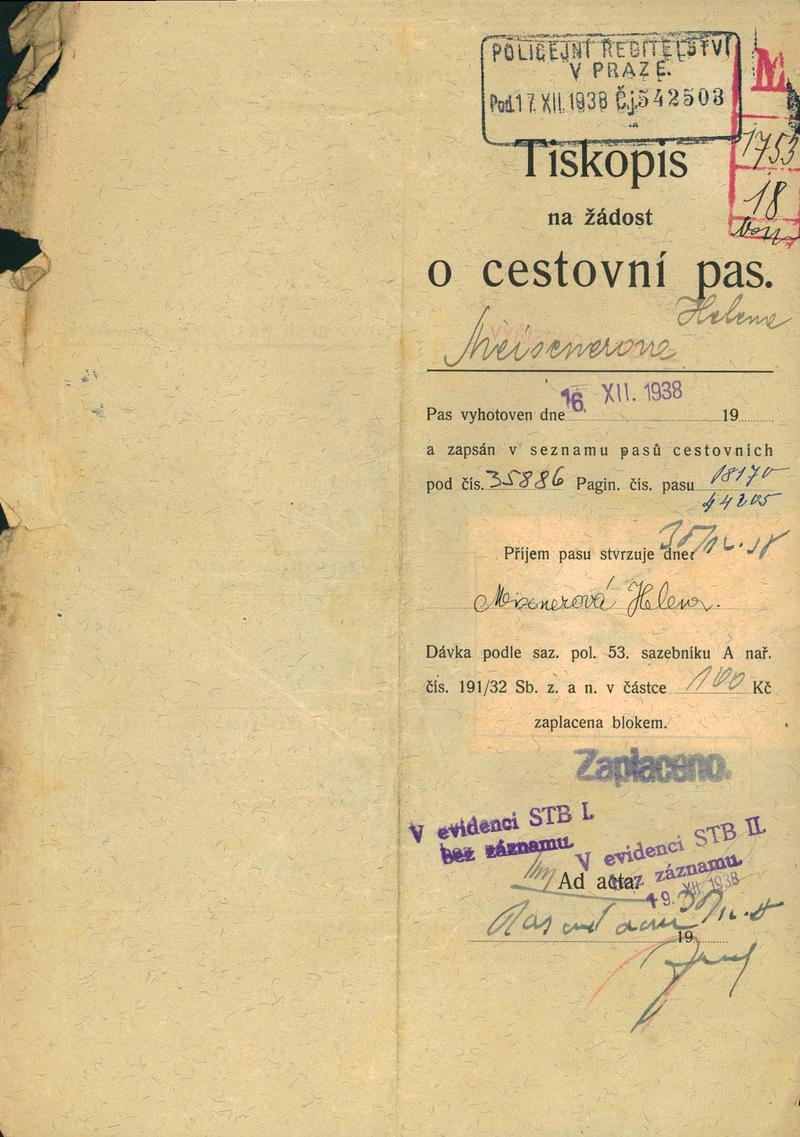 POLICEJNÍ ŘEDITELSTVÍ
V PRAZE.
Pod. 17. XII. 1938 Čj. 542503
M
1753
18
Tiskopis
na žádost
o cestovní pas.
Helena
Meisenerova
Pas vyhotoven dne 16. XII. 1938 19
a zapsán v seznamu pasů cestovních
pod čís. 35886 Pagin. čís. pasu 18170
44205
Příjem pasu stvrzuje dne:
Meisnerová Helena.
Dávka podle saz. pol. 53. sazebníku A nař.
čís. 191/32 Sb. z. a n. v částce 100 Kč
zaplacena blokem.
Zaplaceno.
V evidenci STB I.
bez záznamu.
V evidenci STB II.
bez záznamu.
19. XII. 1938
Ad acta.
19